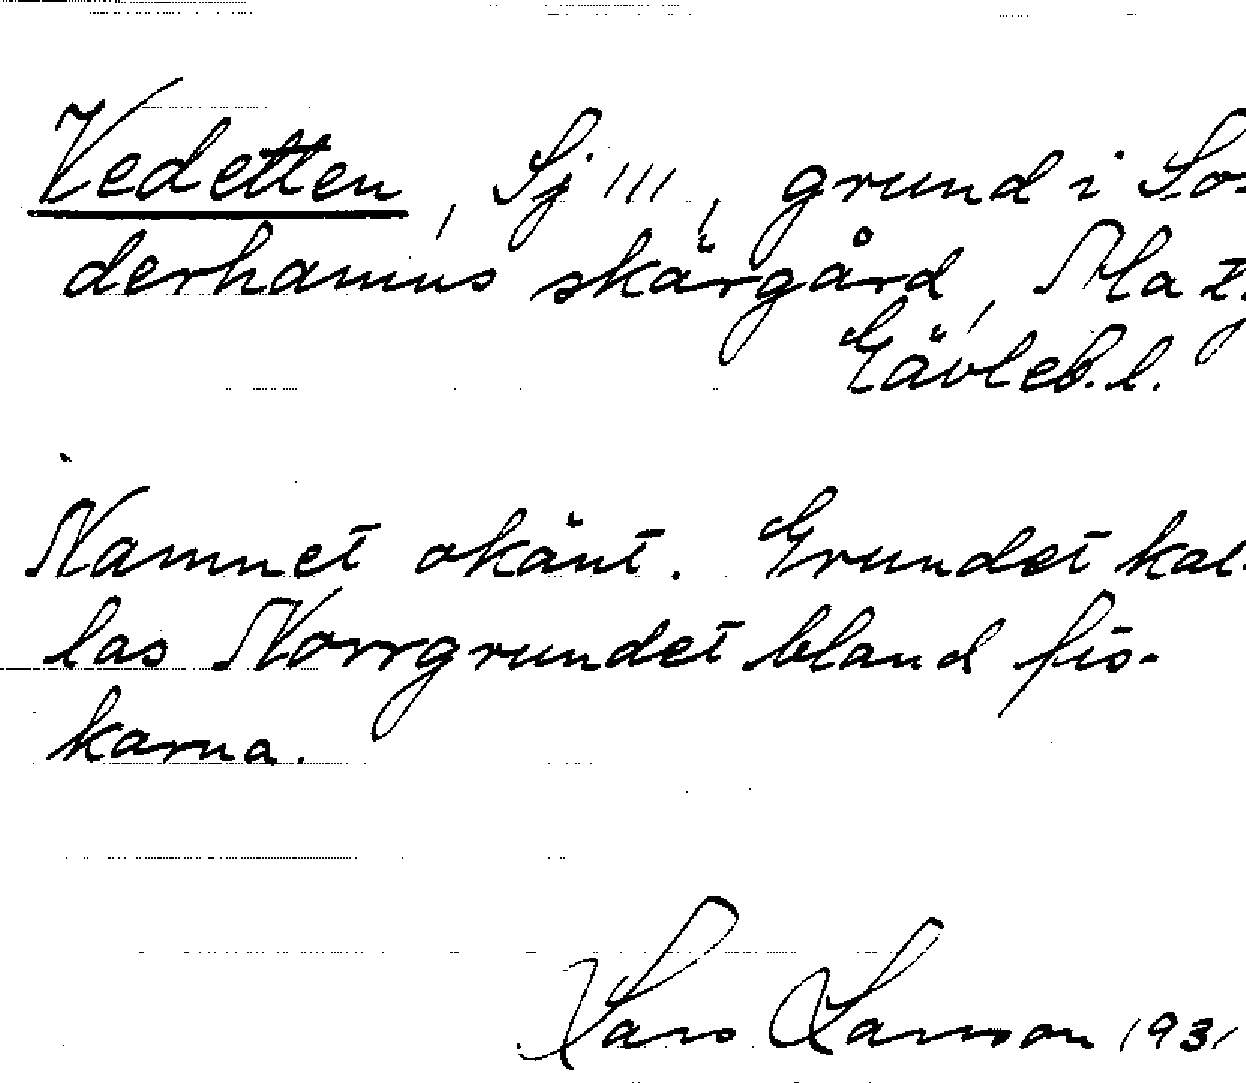 Vedetten, Sj 111, grund i So-
derhamns skärgård,
Gävleb. l.
Namnet okänt. Grundet kal-
las Norrgrundet bland fis-
karna.
Lars Larsson 1931